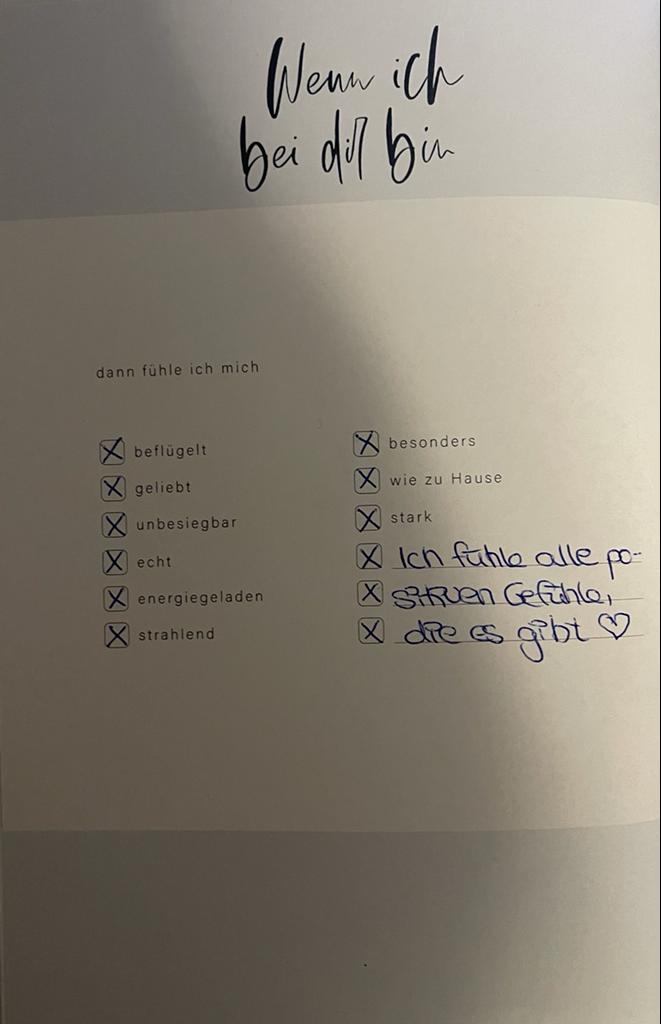 Wenn ich
bei dir bin
dann fühle ich mich
beflügelt
geliebt
unbesiegbar
echt
energiegeladen
strahlend
besonders
wie zu Hause
stark
Ich fühle alle po-
sitiven Gefühle,
die es gibt ♡